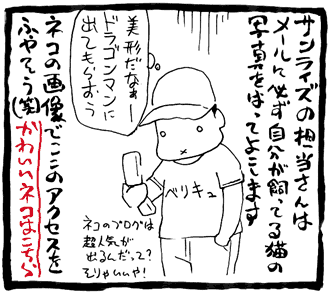 サンライズの担当さんは
メールに必ず自分が飼ってる猫の
写真をはってよこします
美形だなぁー
ドラゴンマンに
出てもらおう
ベリキュ
ネコのブログは
超人気が
出るんだって？
そりゃいいや！
ネコの画像でここのアクセスを
ふやそう(笑)
かわいいネコはこちら